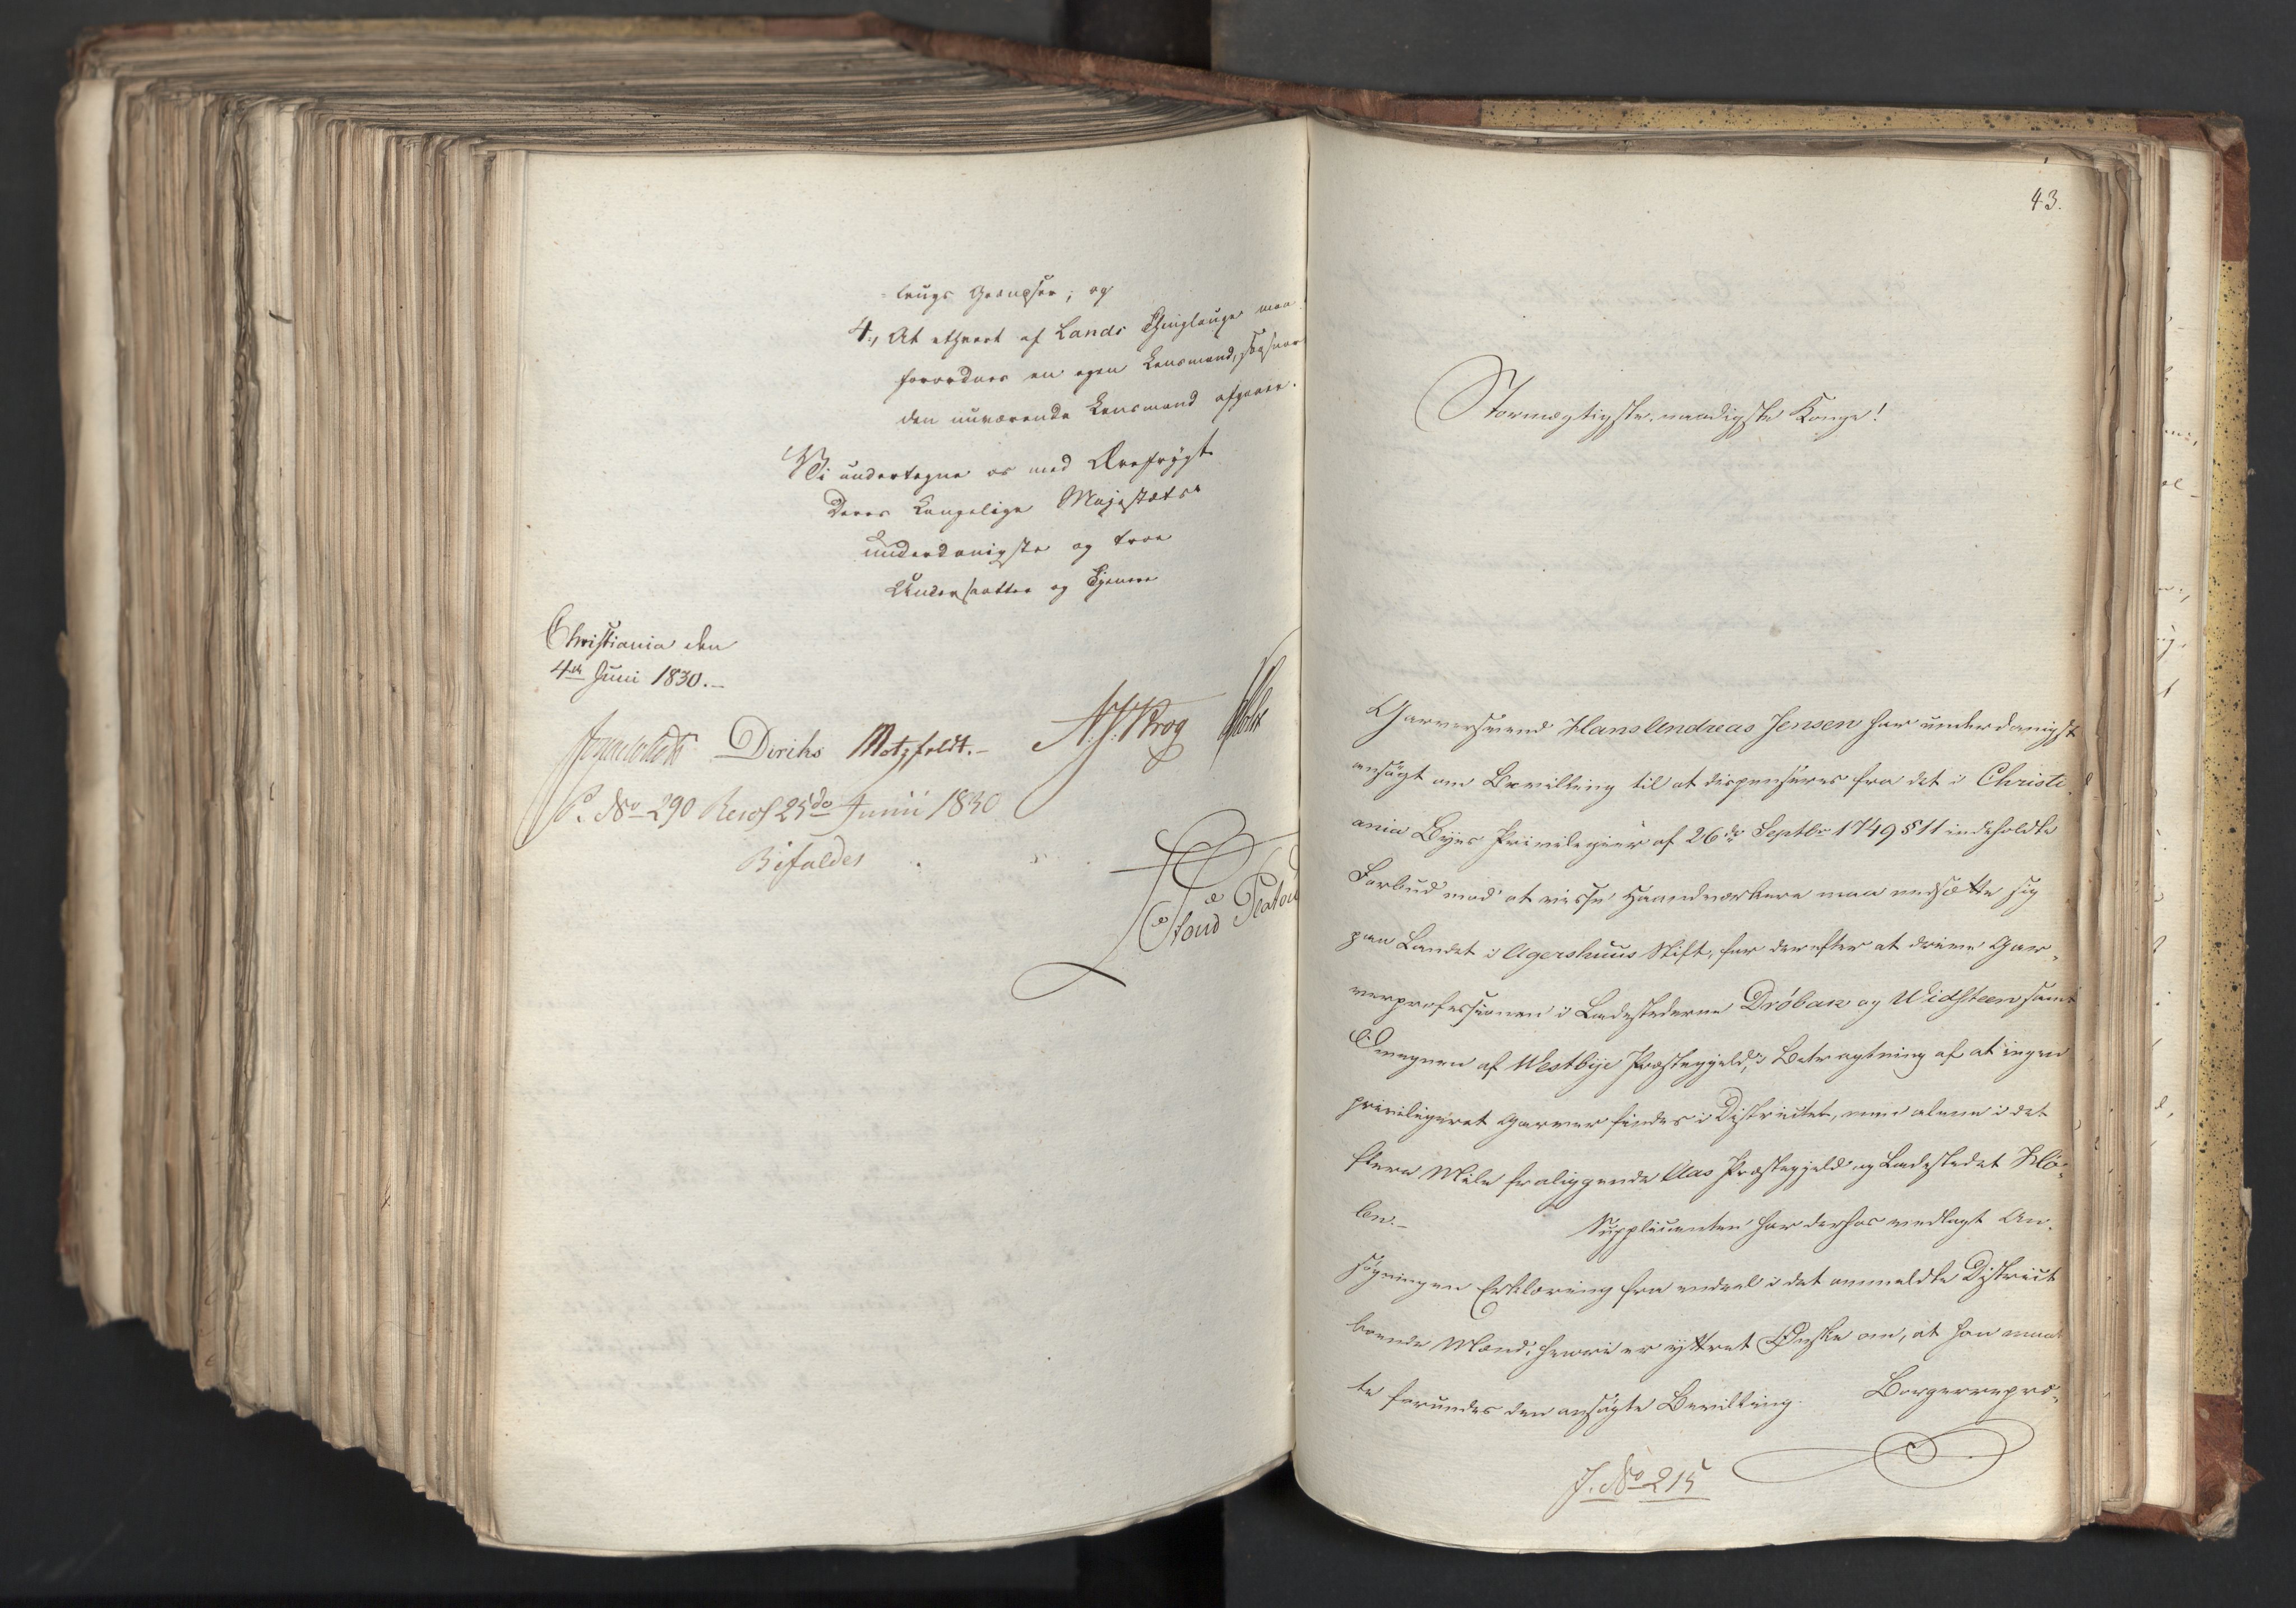 laugs Grændser; og
4., At ethvert af Lands Thinglauge maa
forordnes en egen Lensmand, saasnart
den nuværende Lensmand afgaaer.
Vi undertegne os med Ærefrygt
Deres Kongelige Majestæts
underdanigste og troe
Undersaatter og Tjenere
Christiania den
4de Juni 1830.-
Diriks Motzfeldt.- N. J. Krog Holst
P. No 290 Resol 25de Junii 1830
Bifaldes
43.
Stormægtigste, naadigste Konge!
Garversvend Hans Andreas Jensen har underdanigst
ansøgt om Bevilling til at dispenseres fra det i Christi-
ania Byes Privilegier af 26de Septbr 1749 § 11 indeholdte
Forbud mod at visse Haandværkere maa nedsætte sig
paa Landet i Agershuus Stift, for derefter at drive Gar-
verprofessionen i Ladestederne Drøbak og Widsteen samt
Omegnen af Westbye Præstegjeld, i Betragtning af at ingen
privilegeret Garver findes i Districtet, men alene i det
flere Mile fraliggende Aas Præstegjeld og Ladestedet Hø-
len.- Supplicanten har derhos vedlagt An-
søgningen Erklæring fra endeel i det anmeldte District
boende Mænd, hvori er yttret Ønske om, at han maat
te forundes den ansøgte Bevilling. Borgerrepræ-
J. No 215